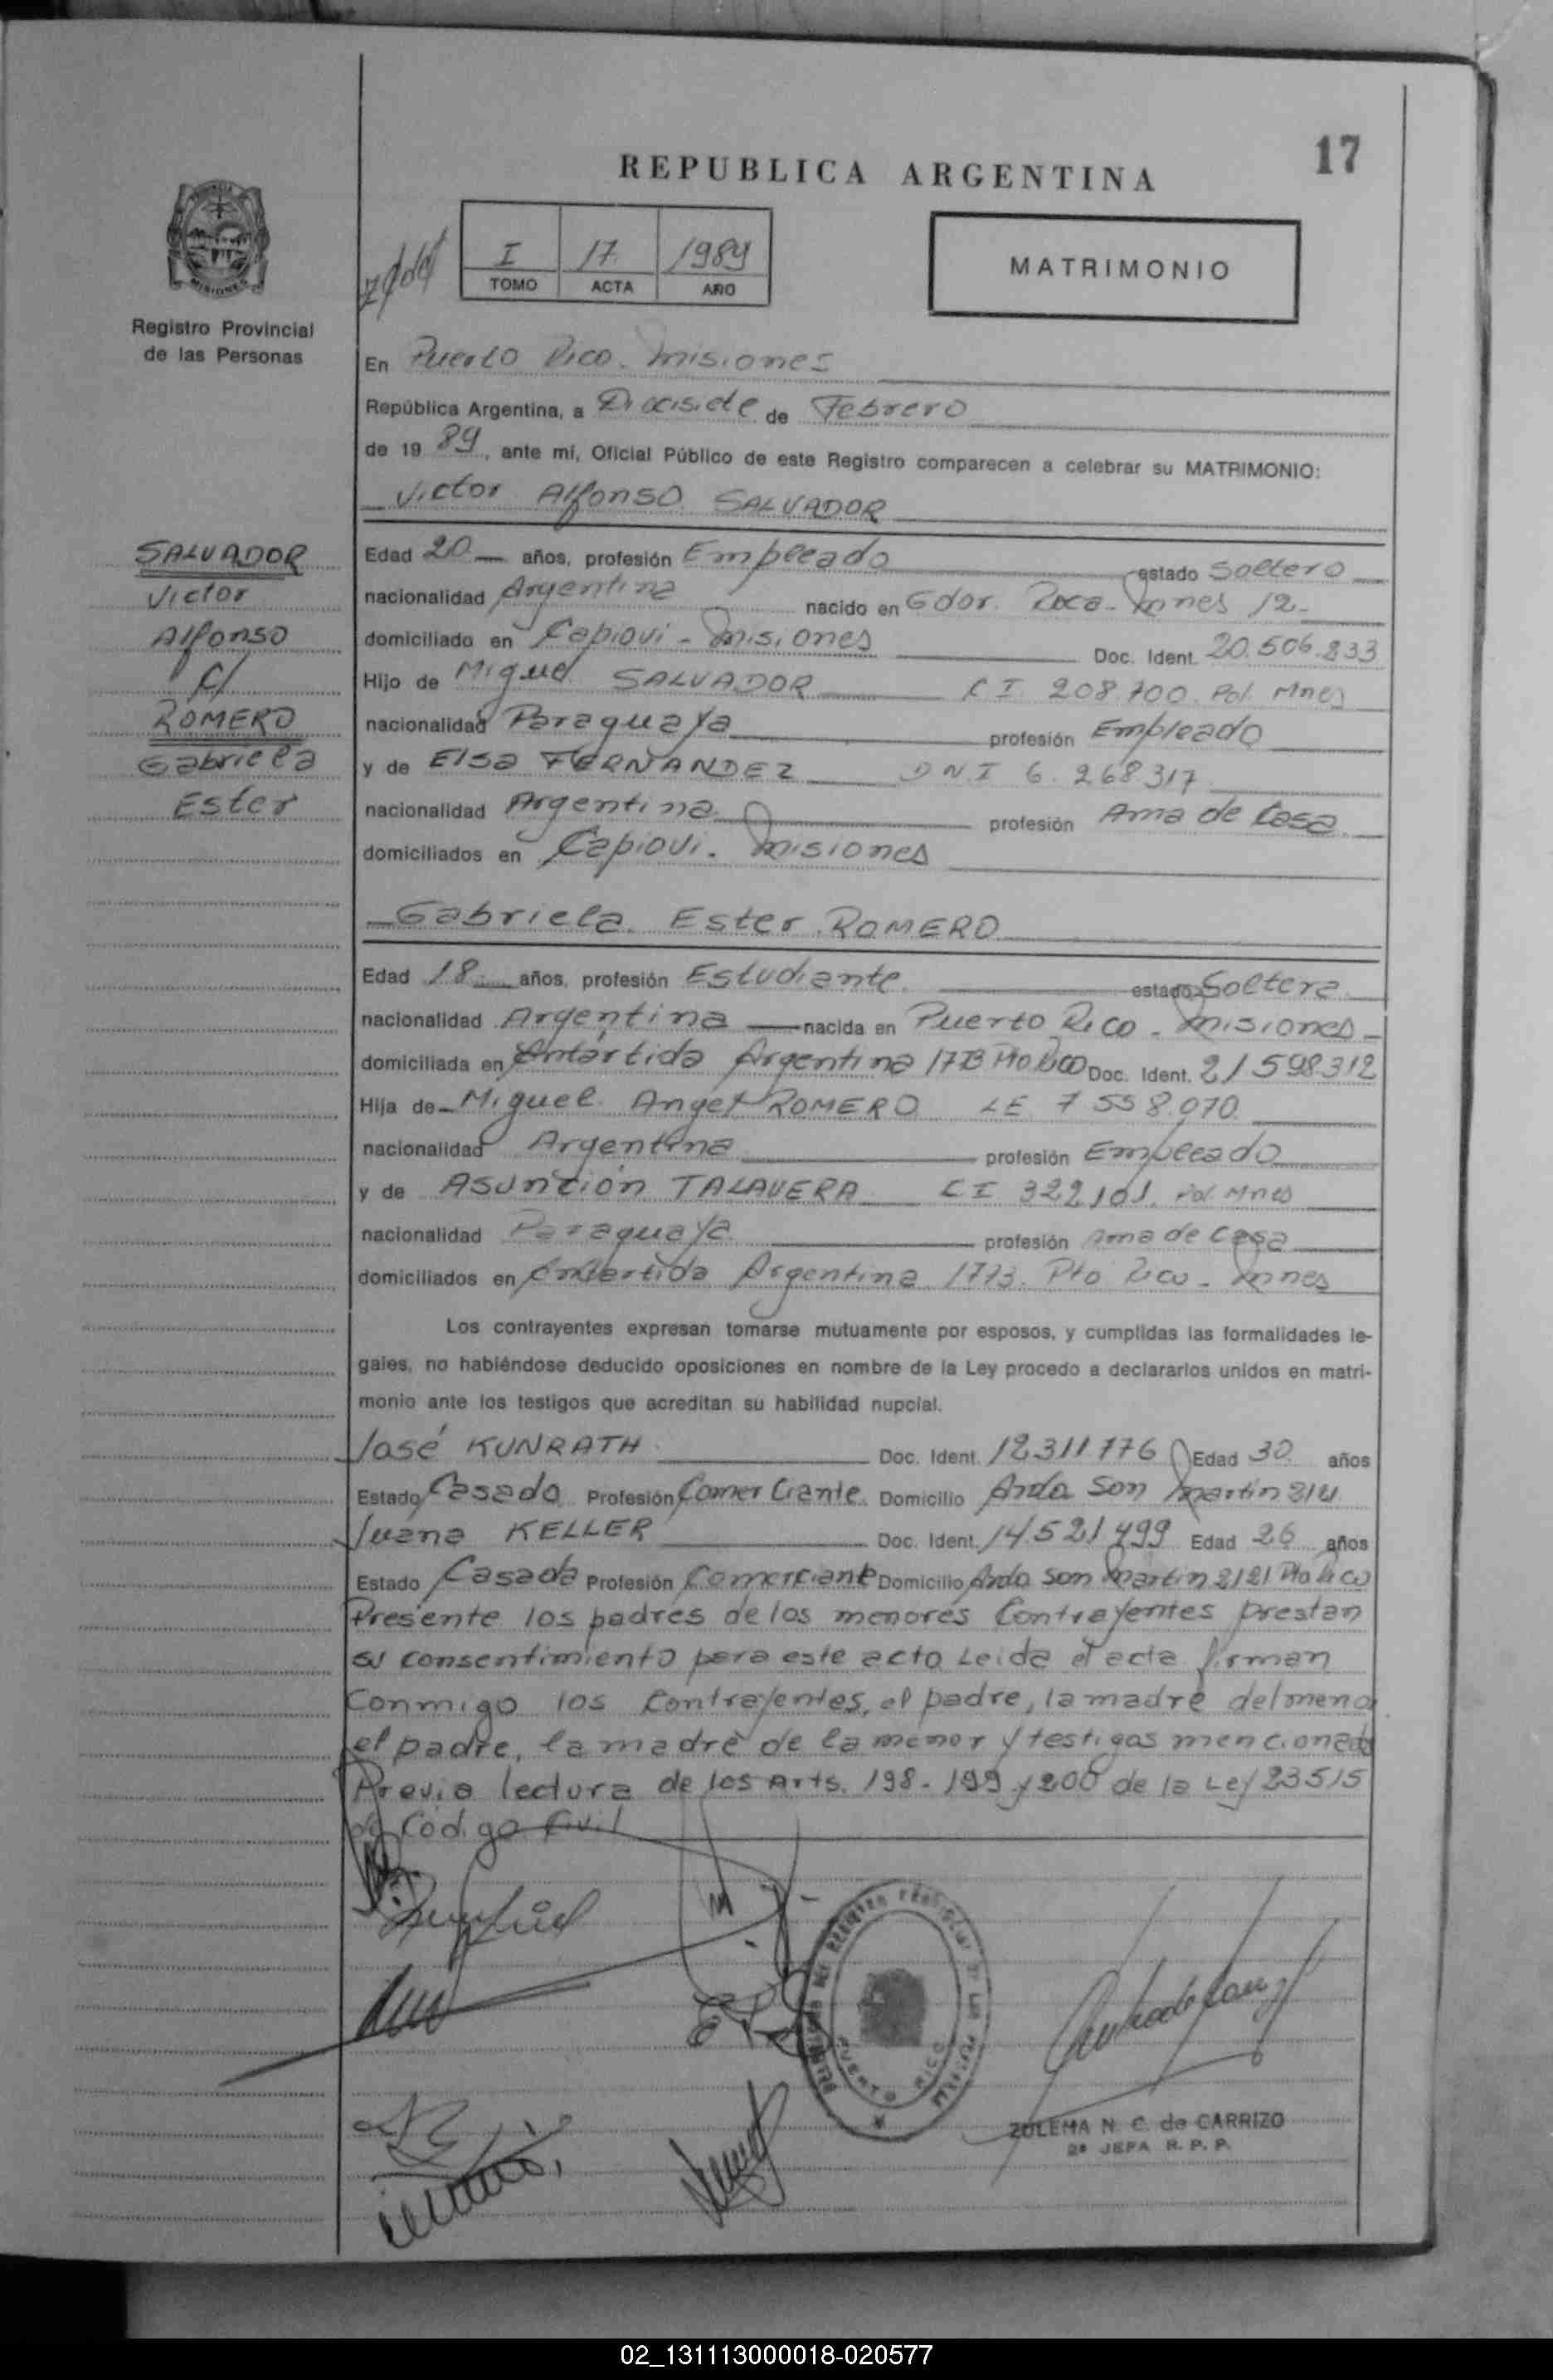 17
REPUBLICA ARGENTINA
I 17 1989
TOMO ACTA AÑO
MATRIMONIO
MISIONES
Registro Provincial
de las Personas
En Puerto Rico. Misiones
República Argentina, a Diecisiete de Febrero
de 19 89, ante mí, Oficial Público de este Registro comparecen a celebrar su MATRIMONIO:
Victor Alfonso SALVADOR
SALVADOR
Victor
Alfonso
c/
ROMERO
Gabriela
Ester
Edad 20 años, profesión Empleado estado Soltero
nacionalidad Argentina nacido en Gdor. Roca. Mnes
domiciliado en Capiovi - Misiones Doc. Ident. 20.506.833
Hijo de Miguel SALVADOR C I 208.700. Pol. Mnes
nacionalidad Paraguaya profesión Empleado
y de Elsa FERNANDEZ DNI 6.268317
nacionalidad Argentina profesión Ama de Casa
domiciliados en Capiovi. Misiones
Gabriela Ester ROMERO
Edad 18 años, profesión Estudiante estado Soltera
nacionalidad Argentina nacida en Puerto Rico - Misiones
domiciliada en Antártida Argentina Pto Rico Doc. Ident. 21598312
Hija de Miguel Angel ROMERO LE 7 558.070
nacionalidad Argentina profesión Empleado
y de Asunción TALAVERA CI 322101. Pol. Mnes
nacionalidad Paraguaya profesión Ama de Casa
domiciliados en Antartida Argentina 1773. Pto Rico - Mnes
Los contrayentes expresan tomarse mutuamente por esposos, y cumplidas las formalidades le-
gales, no habiéndose deducido oposiciones en nombre de la Ley procedo a declararlos unidos en matri-
monio ante los testigos que acreditan su habilidad nupcial.
José KUNRATH Doc. Ident. 12311776 Edad 30 años
Estado Casado Profesión Comerciante Domicilio Avda San Martin
Juana KELLER Doc. Ident. 14.521499 Edad 26 años
Estado Casada Profesión Comerciante Domicilio Avda San Martin 2121 Pto Rico
Presente los padres de los menores Contrayentes prestan
su consentimiento para este acto Leida el acta firman
Conmigo los Contrayentes, el padre, la madre del menor
el padre, la madre de la menor y testigos mencionados
Previa lectura de los Arts. 198 - 199 y 200 de la Ley 23515
de Código Civil
PUERTO RICO
ZULEMA N. C. de CARRIZO
2ª JEFA R. P. P.
02_131113000018-020577